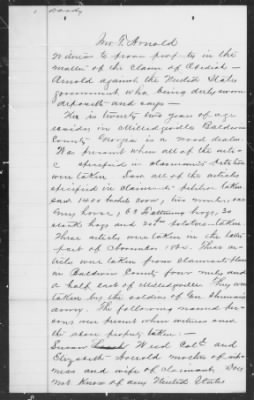 Wm T. Arnold
Witness to prove property in the
matter of the claim of Obediah
Arnold against the United States
government who being duly sworn
deposeth and says —
He is twenty two years of age
resides in Milledgeville Baldwin
County Georgia is a wood dealer
Was present when all of the
specified in claimants Petition
were taken. Saw all of the articles
specified in claimants petition taken
one
horse, hogs, 30
hogs and potatoes taken
These articles were taken in the latter
part of November 1864. These
were taken from claimants place
in Baldwin County four miles and
a half east of Milledgeville They were
taken by the soldiers of Gen Shermans
army. The following named per
sons were present when witness saw
the above property taken: —
Susan West Cold and
Elizabeth Arnold mother of wit
ness and wife of claimant. Does
not know of any United States